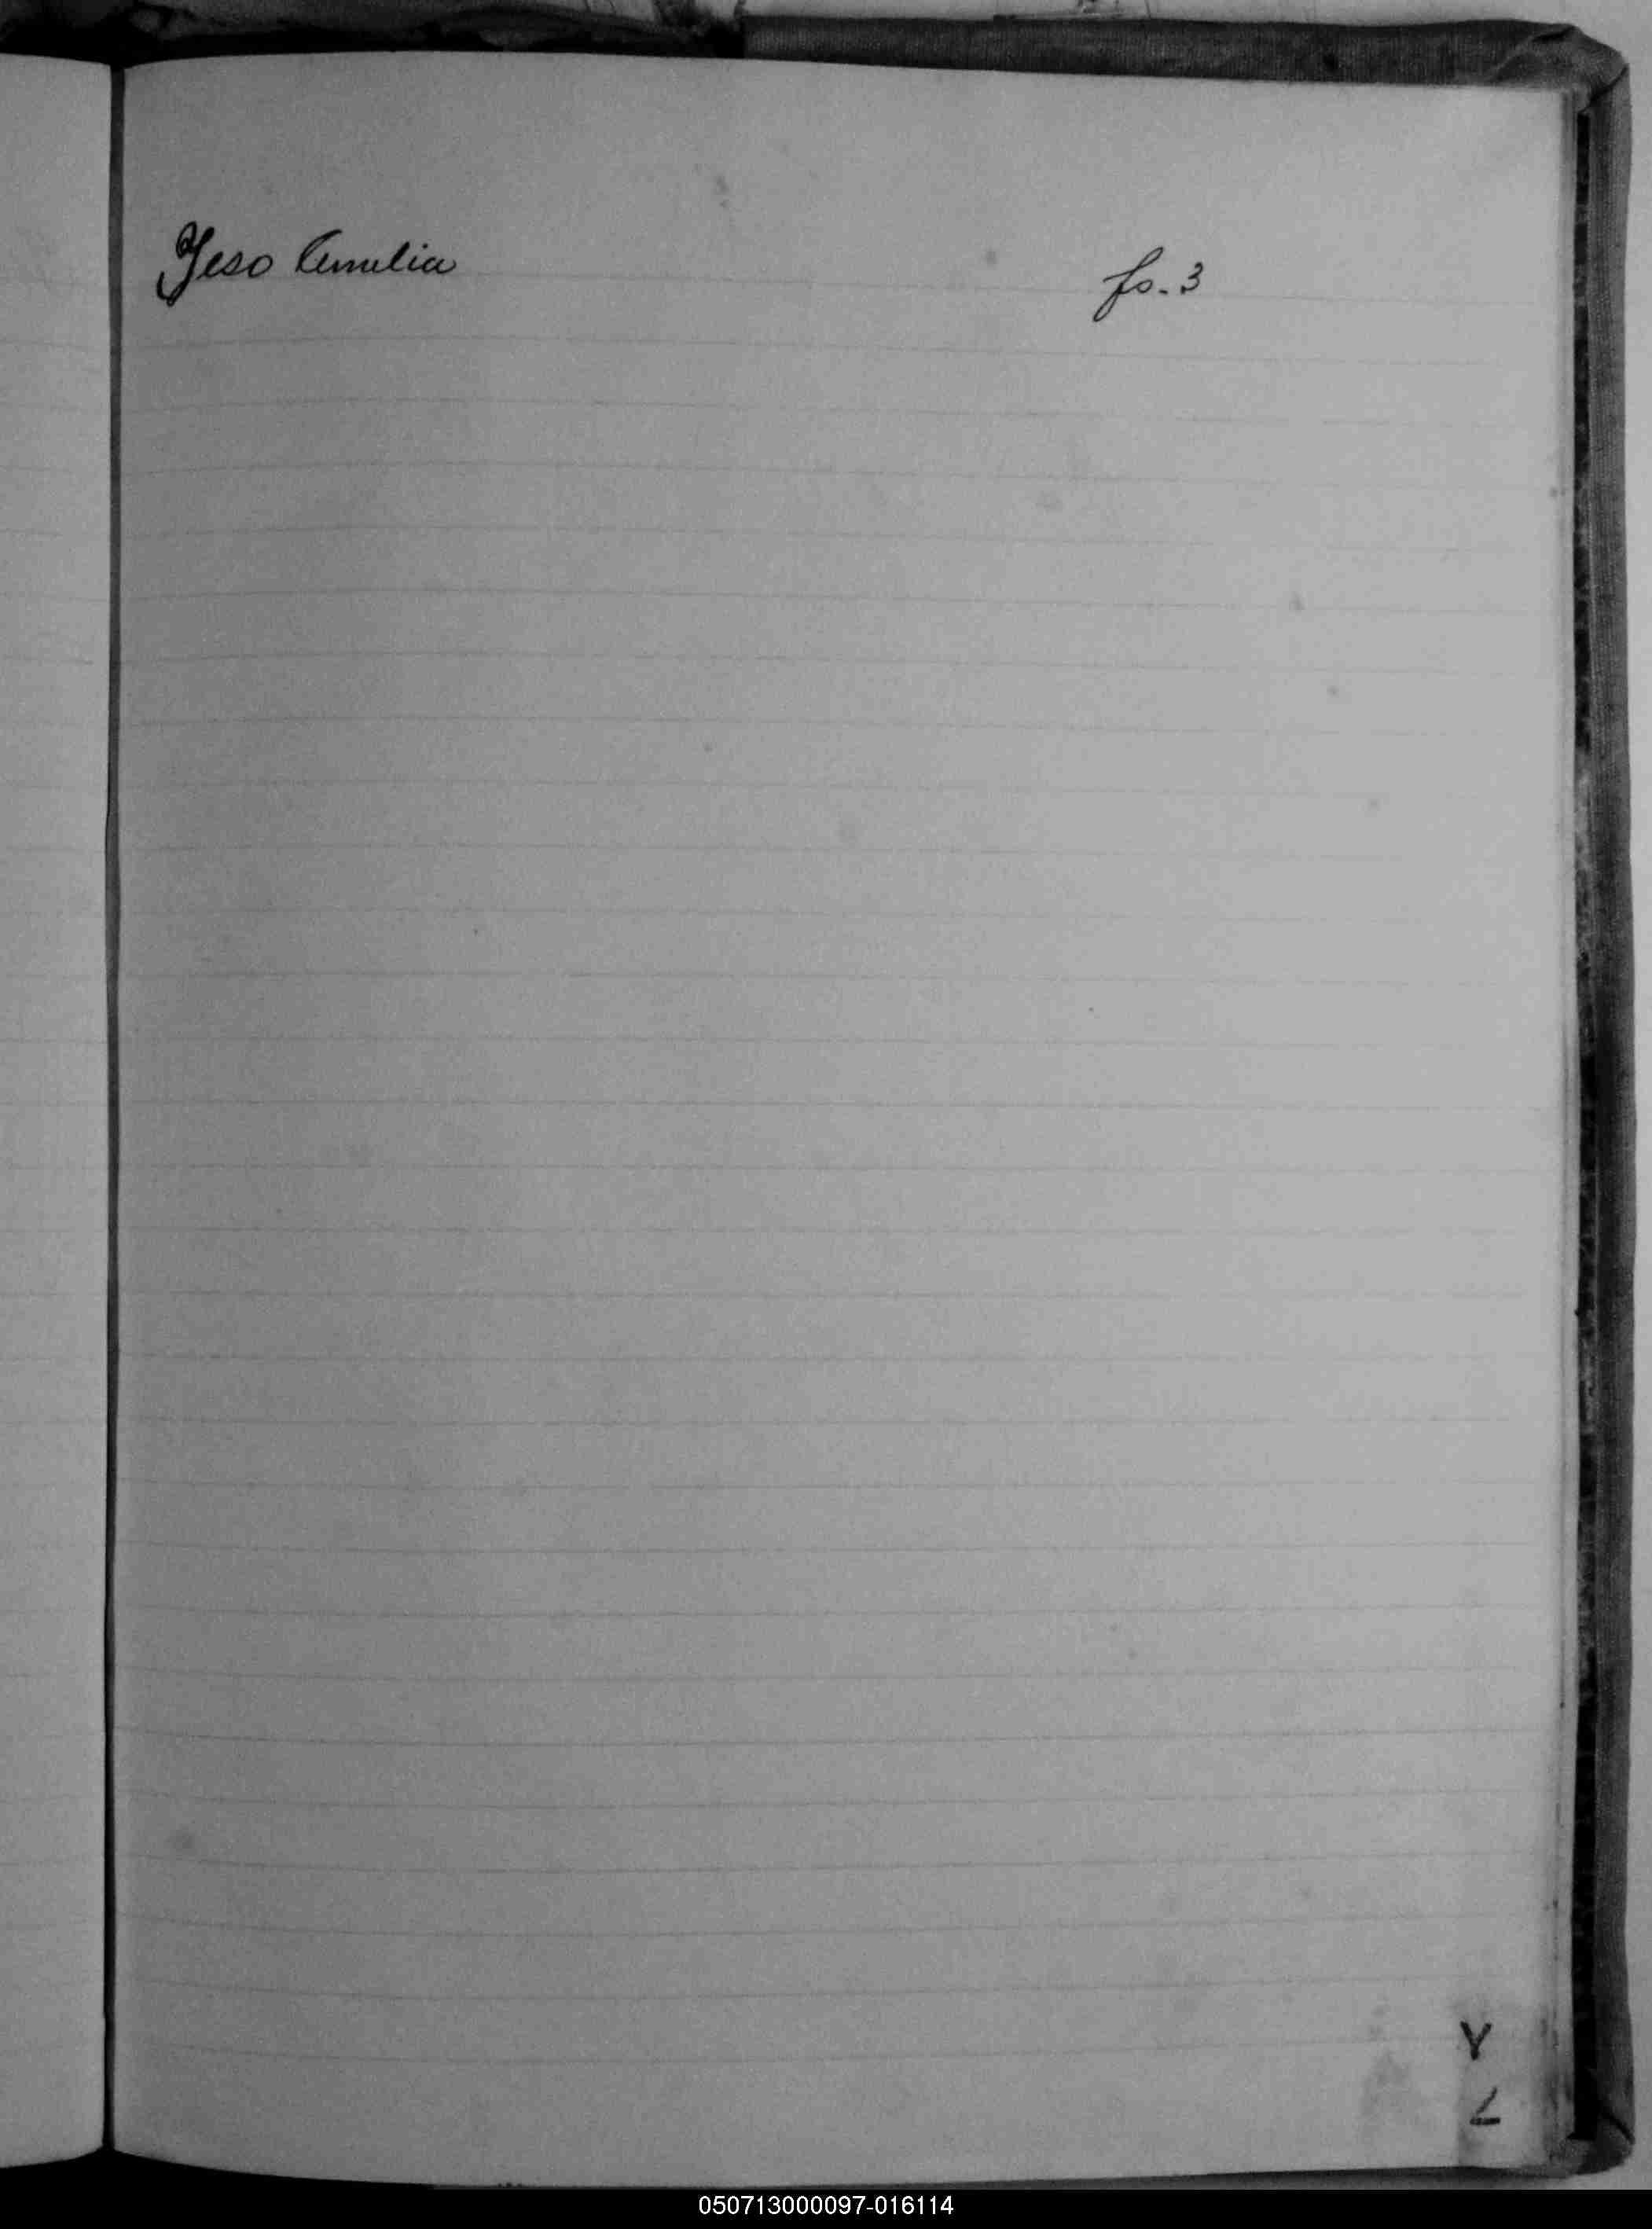 Yeso Amelia fs. 3
Y
Z
050713000097-016114